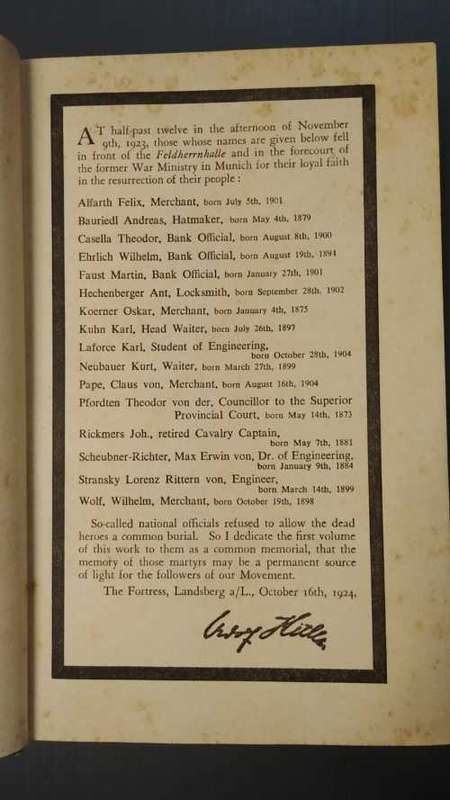 AT half-past twelve in the afternoon of November
9th, 1923, those whose names are given below fell
in front of the Feldherrnhalle and in the forecourt of
the former War Ministry in Munich for their loyal faith
in the resurrection of their people :
Alfarth Felix, Merchant, born July 5th, 1901
Bauriedl Andreas, Hatmaker, born May 4th, 1879
Casella Theodor, Bank Official, born August 8th, 1900
Ehrlich Wilhelm, Bank Official, born August 19th, 1894
Faust Martin, Bank Official, born January 27th, 1901
Hechenberger Ant, Locksmith, born September 28th, 1902
Koerner Oskar, Merchant, born January 4th, 1875
Kuhn Karl, Head Waiter, born July 26th, 1897
Laforce Karl, Student of Engineering,
born October 28th, 1904
Neubauer Kurt, Waiter, born March 27th, 1899
Pape, Claus von, Merchant, born August 16th, 1904
Pfordten Theodor von der, Councillor to the Superior
Provincial Court, born May 14th, 1873
Rickmers Joh., retired Cavalry Captain,
born May 7th, 1881
Scheubner-Richter, Max Erwin von, Dr. of Engineering,
born January 9th, 1884
Stransky Lorenz Rittern von, Engineer,
born March 14th, 1899
Wolf, Wilhelm, Merchant, born October 19th, 1898
So-called national officials refused to allow the dead
heroes a common burial. So I dedicate the first volume
of this work to them as a common memorial, that the
memory of those martyrs may be a permanent source
of light for the followers of our Movement.
The Fortress, Landsberg a/L., October 16th, 1924.
Adolf Hitler